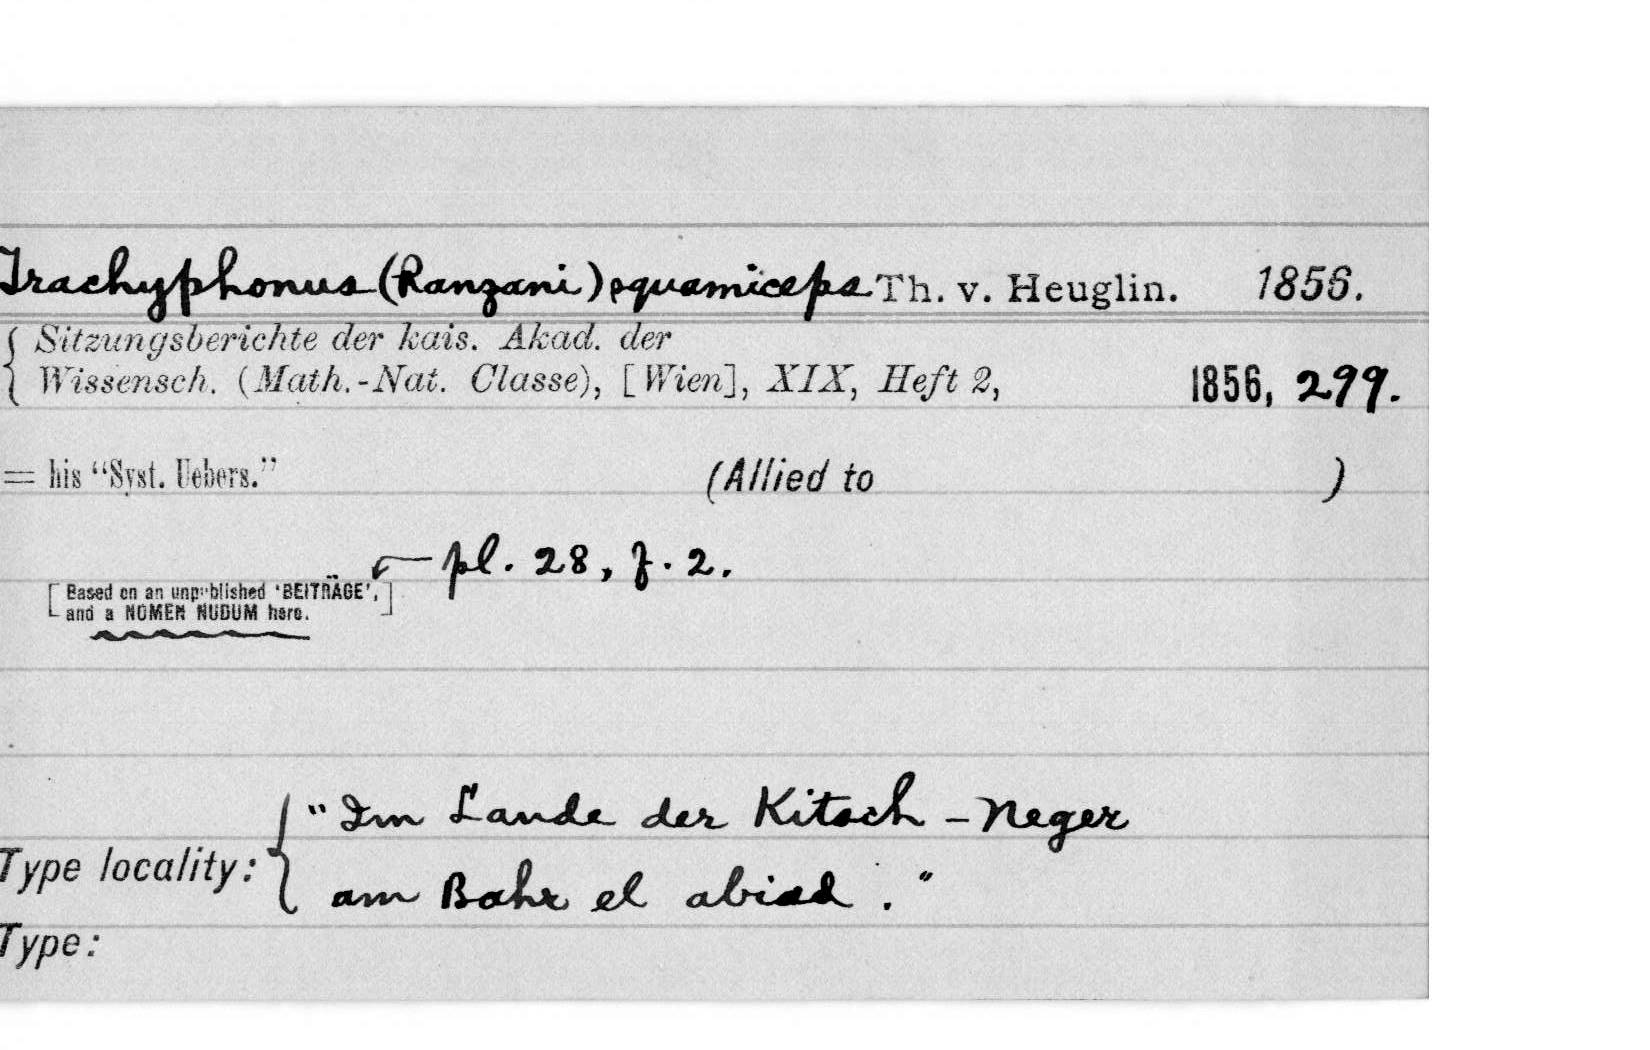 Trachyphonus (Ranzani) squamiceps Th. v. Heuglin. 1856.
Sitzungsberichte der kais. Akad. der
Wissensch. (Math.-Nat. Classe), [Wien], XIX, Heft 2, 1856, 299.
= his “Syst. Uebers.” (Allied to )
pl. 28, f. 2.
[Based on an unpublished ‘BEITRÄGE’,
and a NOMEN NUDUM here.]
"Im Lande der Kitsch-Neger
Type locality:
am Bahr el abiad."
Type: